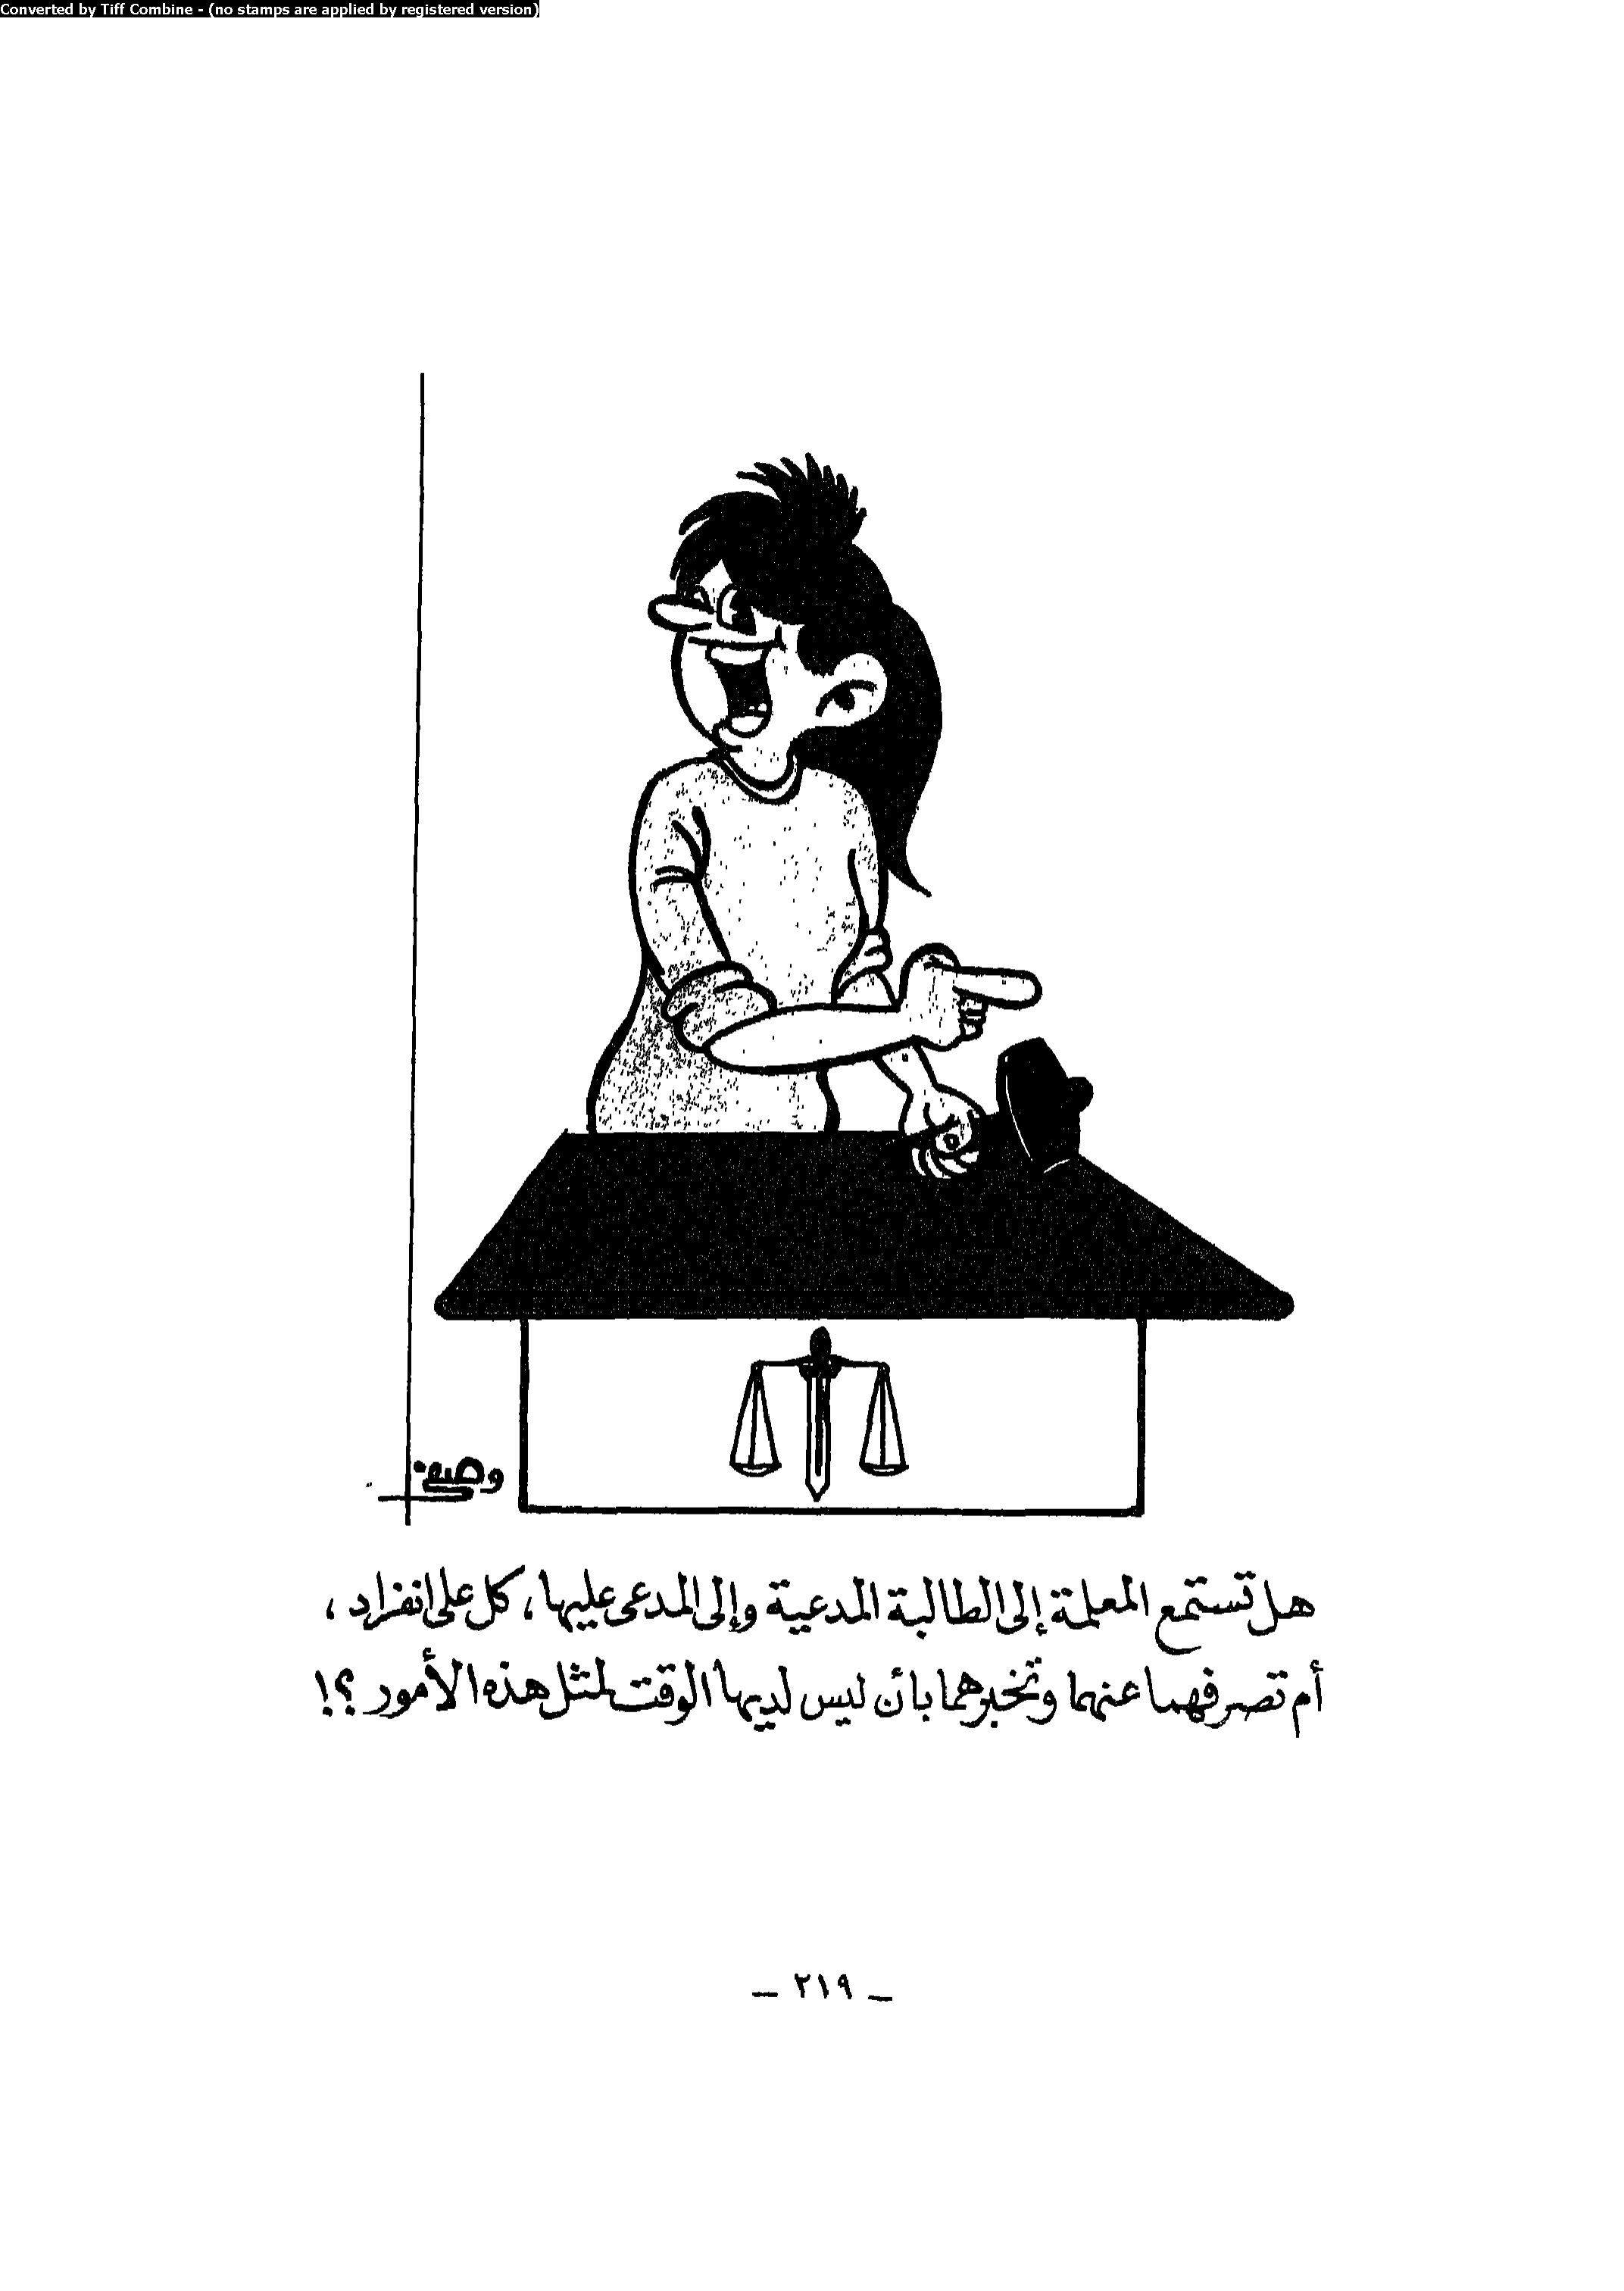 Converted by Tiff Combine - (no stamps are applied by registered version)
وصفي
هل تستمع المعلمة إلى الطالبة المدعية وإلى المدعى عليها، كل على انفراد،
أم تصرفهما عنها وتخبرهما بأن ليس لديها الوقت لمثل هذه الأمور ؟!
— ٢١٩ —